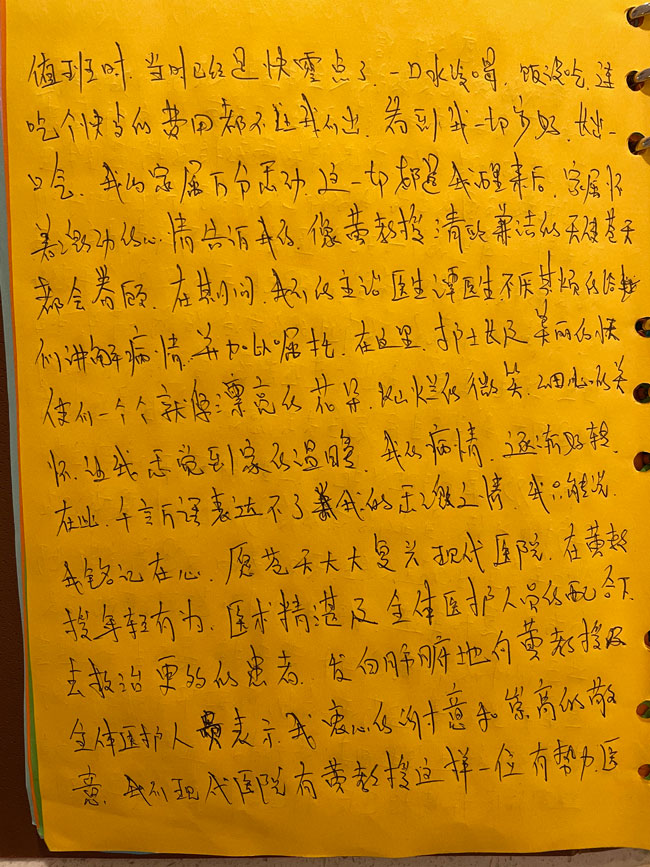 值班时，当时已经是快零点了，一口水没喝，饭没吃，连
吃个快当的费用都不让我们出，看到我一切多好，她一
口会，我的家属万分感动，这一切都是我醒来后，家属怀
着激动的心情告诉我的，像黄教授清正廉洁的天使苍天
都会眷顾，在其间，我们的主治医生谭医生不厌其烦的给
们讲解病情，并加以嘱托，在这里，护士长及美丽的快
使们一个个就像漂亮的花朵，灿烂的微笑，细心的关
怀，让我感觉到家的温暖，我的病情，逐渐好转，
在此，千言万语表达不了我的感激之情，我只能说，
我铭记在心，愿苍天大大复兴现代医院，在黄教
授年轻有为，医术精湛及全体医护人员的配合下，
去救治更多的患者，发自肺腑地向黄教授及
全体医护人员表示我衷心的谢意和崇高的敬
意，我们现代医院有黄教授这样一位有势力医